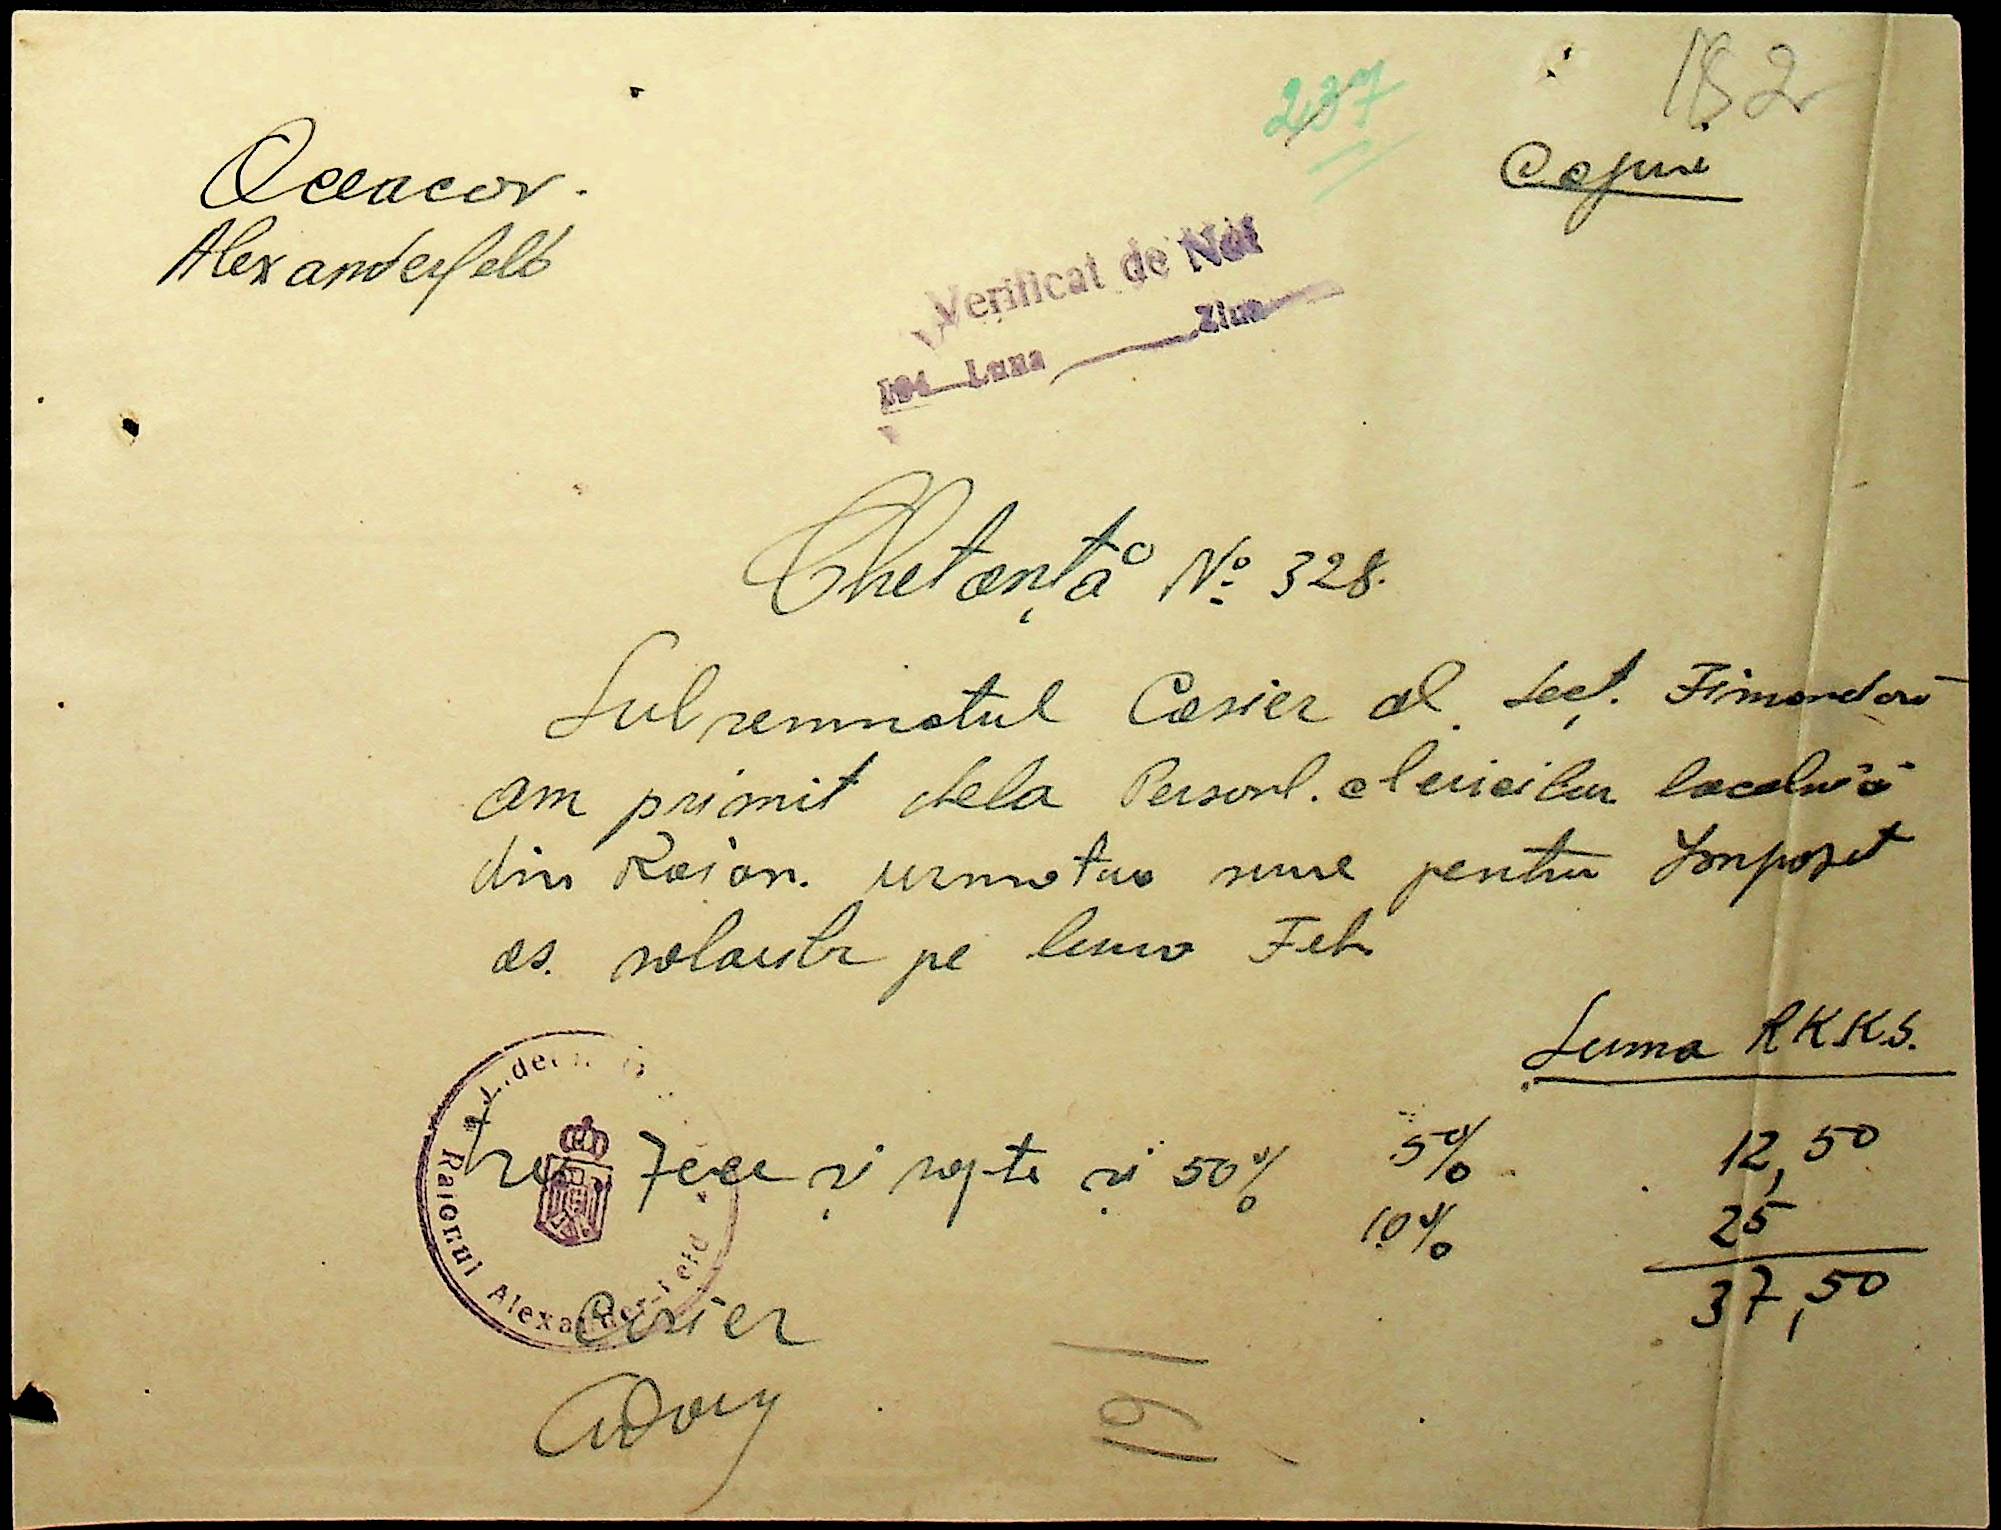 237
182
Copie
Oceacov.
Alexanderfeld
Verificat de Noi
194 Luna Ziua
Chetanța No 328.
Subsemnatul Casier al Secț. Financiară
am primit dela Personl. clericilor
din Raion. urmatoa sume pentru Impozit
as. salariilor pe luna Feb
Suma RKKS.
trei zeci și șapte și 50%
5% 12,50
10% 25
37,50
Raionul Alexander-Feld
Casier